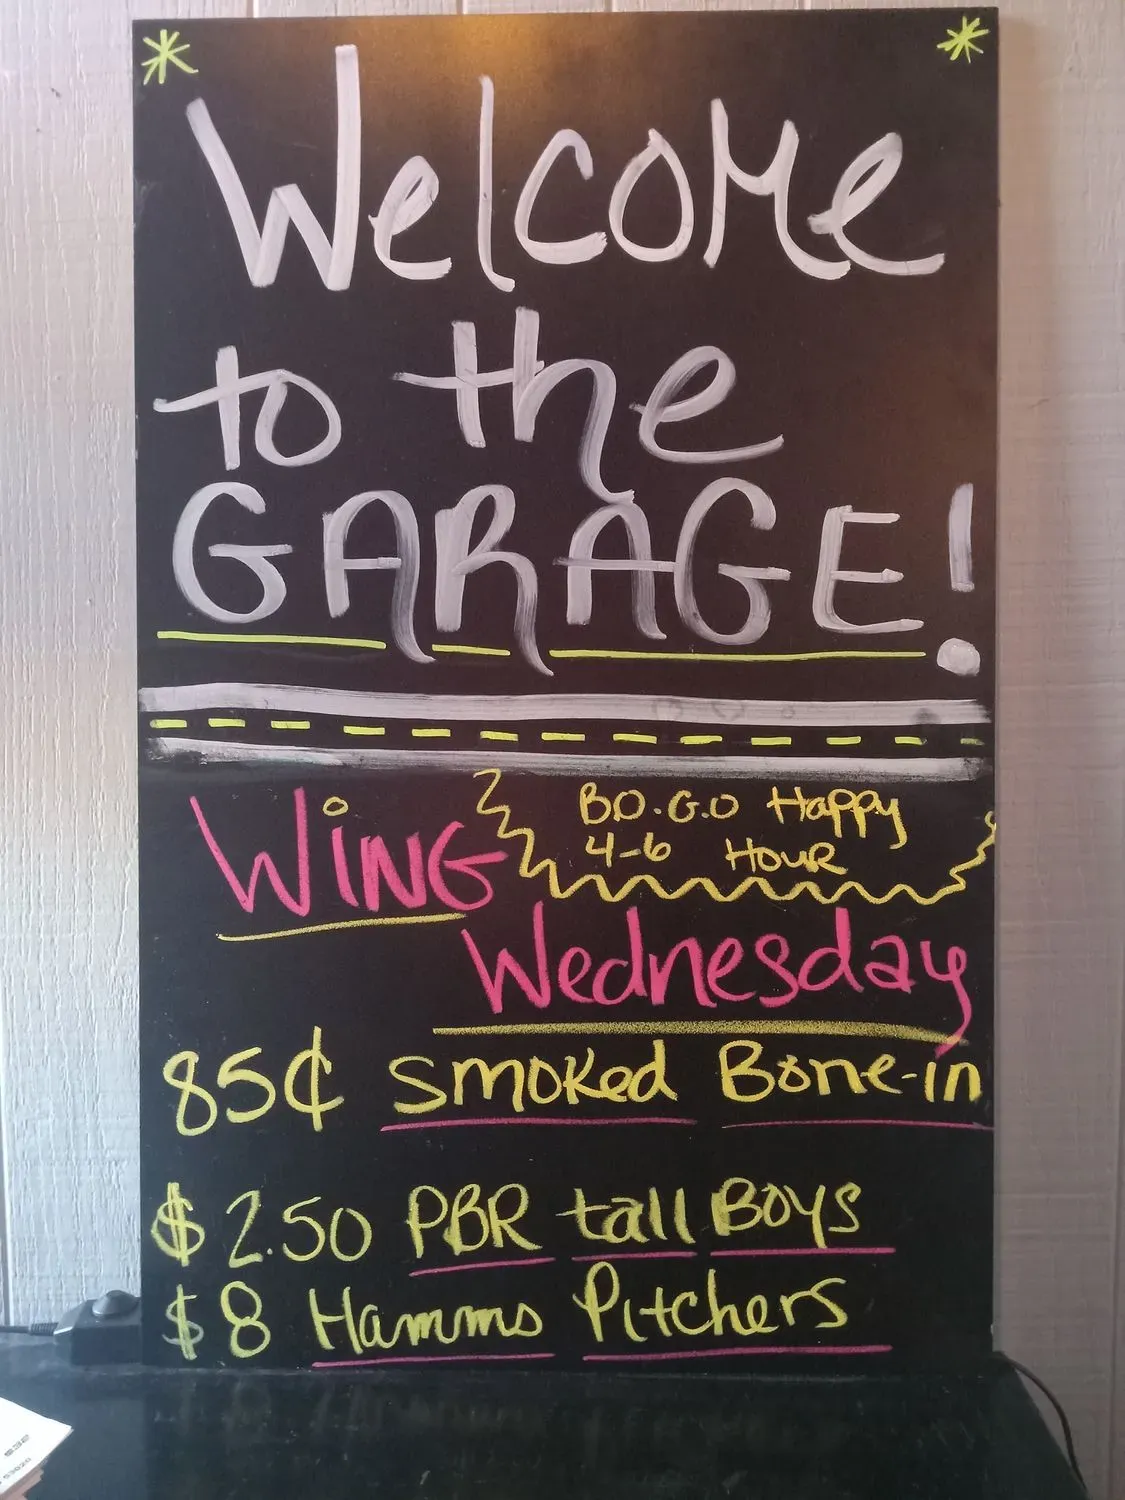 Welcome
to the
GARAGE!
WiNG
BO.G.O Happy
4-6 Hour
Wednesday
85¢ smoked Bone-in
$2.50 PBR tall Boys
$8 Hamms Pitchers
53020